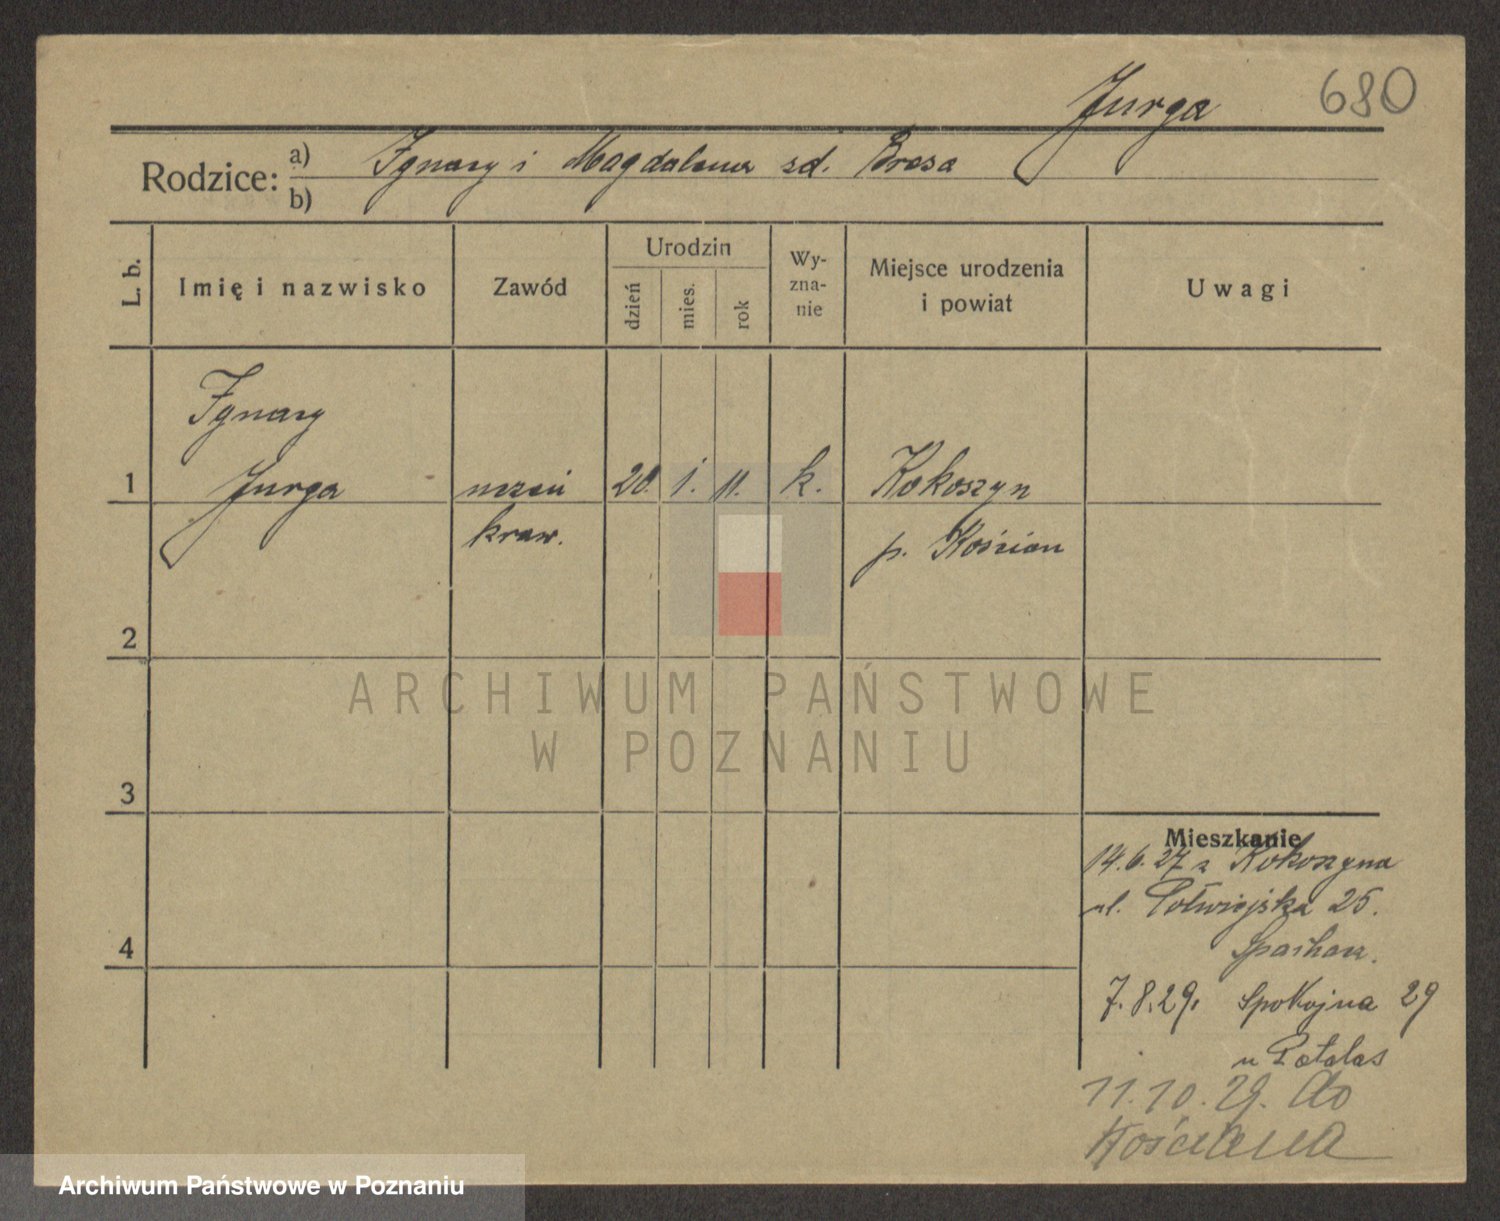 Jurga 680
Rodzice: a) Ignacy i Magdalena zd. Bresa
b)
L. b. Imię i nazwisko Zawód Urodzin dzień mies. rok Wy-zna-nie Miejsce urodzenia i powiat Uwagi
Ignacy
1 Jurga uczeń 20. 1. 11. k. Kokoszyn
kraw. p. Kościan
2
ARCHIWUM PAŃSTWOWE
W POZNANIU
3
Mieszkanie
14.6.27 z Kokoszyna
ul. Półwiejska 25.
4
7.8.29. Spokojna 29
u
11.10.29. do
Kościana
Archiwum Państwowe w Poznaniu